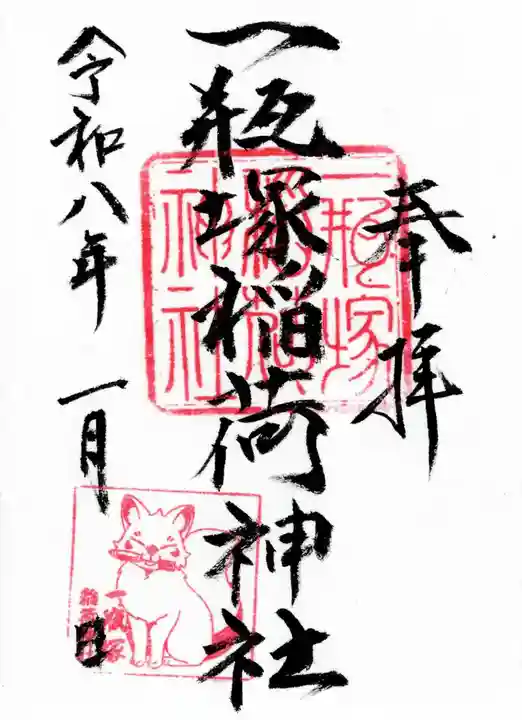 奉拝
一瓶塚稲荷神社
令和八年 一月 日
一瓶塚
稲荷
神社
一瓶塚